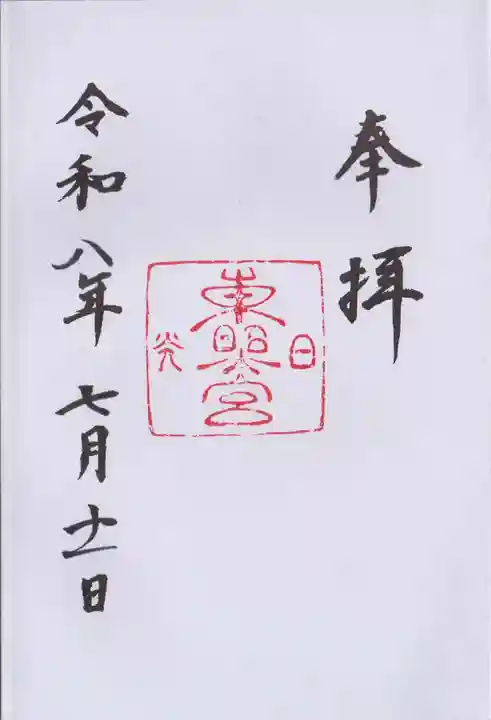 奉拝
日光
東照宮
令和八年七月十一日